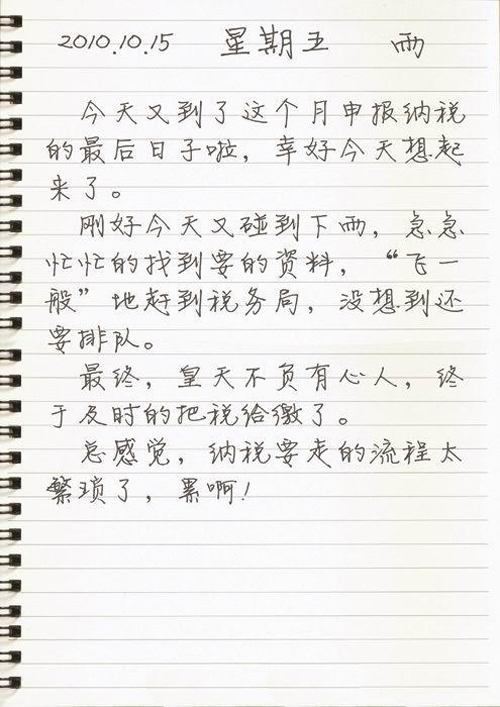 2010.10.15 星期五 雨
今天又到了这个月申报纳税
的最后日子啦，幸好今天想起
来了。
刚好今天又碰到下雨，急急
忙忙的找到要的资料，“飞一
般”地赶到税务局，没想到还
要排队。
最终，皇天不负有心人，终
于及时的把税给缴了。
总感觉，纳税要走的流程太
繁琐了，累啊！